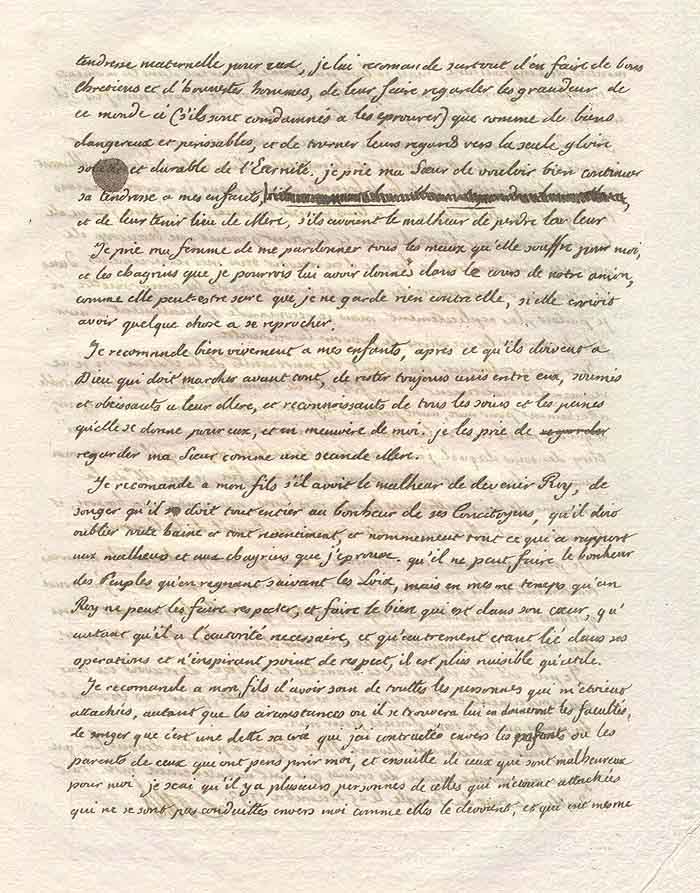 tendresse maternelle pour eux, je lui recomande surtout d'en faire de bons
Chretiens et d'honnestes hommes, de leur faire regarder les grandeurs de
ce monde ci (s'ils sont condamnés a les eprouver) que comme de biens
dangereux et perissables, et de tourner leurs regards vers la seule gloire
solide et durable de l'Eternité. je prie ma Sœur de vouloir bien continuer
sa tendresse a mes enfants,
et de leur tenir lieu de Mere, s'ils avoient le malheur de perdre la leur
Je prie ma femme de me pardonner tous les maux qu'elle souffre pour moi,
et les chagrins que je pourrois lui avoir donnés dans le cours de notre union,
comme elle peut estre sure que je ne garde rien contre elle, si elle croioit
avoir quelque chose a se reprocher.
Je recomande bien vivement a mes enfants, apres ce qu'ils doivent a
Dieu qui doit marcher avant tout, de rester toujours unis entre eux, soumis
et obeissants a leur Mere, et reconnoissants de tous les soins et les peines
qu'elle se donne pour eux, et en memoire de moi. je les prie de regarder
regarder ma Sœur comme une seconde Mere.
Je recomande a mon fils s'il avoit le malheur de devenir Roy, de
songer qu'il se doit tout entier au bonheur de ses Concitoyens, qu'il doit
oublier toute haine et tout resentiment, et nommement tout ce qui a rapport
aux malheurs et aux chagrins que j'eprouve. qu'il ne peut faire le bonheur
des Peuples qu'en regnant suivant les Loix, mais en mesme temps qu'un
Roy ne peut les faire respecter, et faire le bien qui est dans son cœur, qu'
autant qu'il a l'autorité necessaire, et qu'autrement etant lié dans ses
operations et n'inspirant point de respect, il est plus nuisible qu'utile.
Je recomande a mon fils d'avoir soin de touttes les personnes qui m'etoient
attachées, autant que les circonstances ou il se trouvera lui en donneront les facultés,
de songer que c'est une dette sacrée que j'ai contractée envers les enfants ou les
parents de ceux qui ont peris pour moi, et ensuitte de ceux qui sont malheureux
pour moi je scai qu'il y a plusieurs personnes de celles qui m'etoient attachées
qui ne se sont pas conduittes envers moi comme elles le devoient, et qui ont mesme